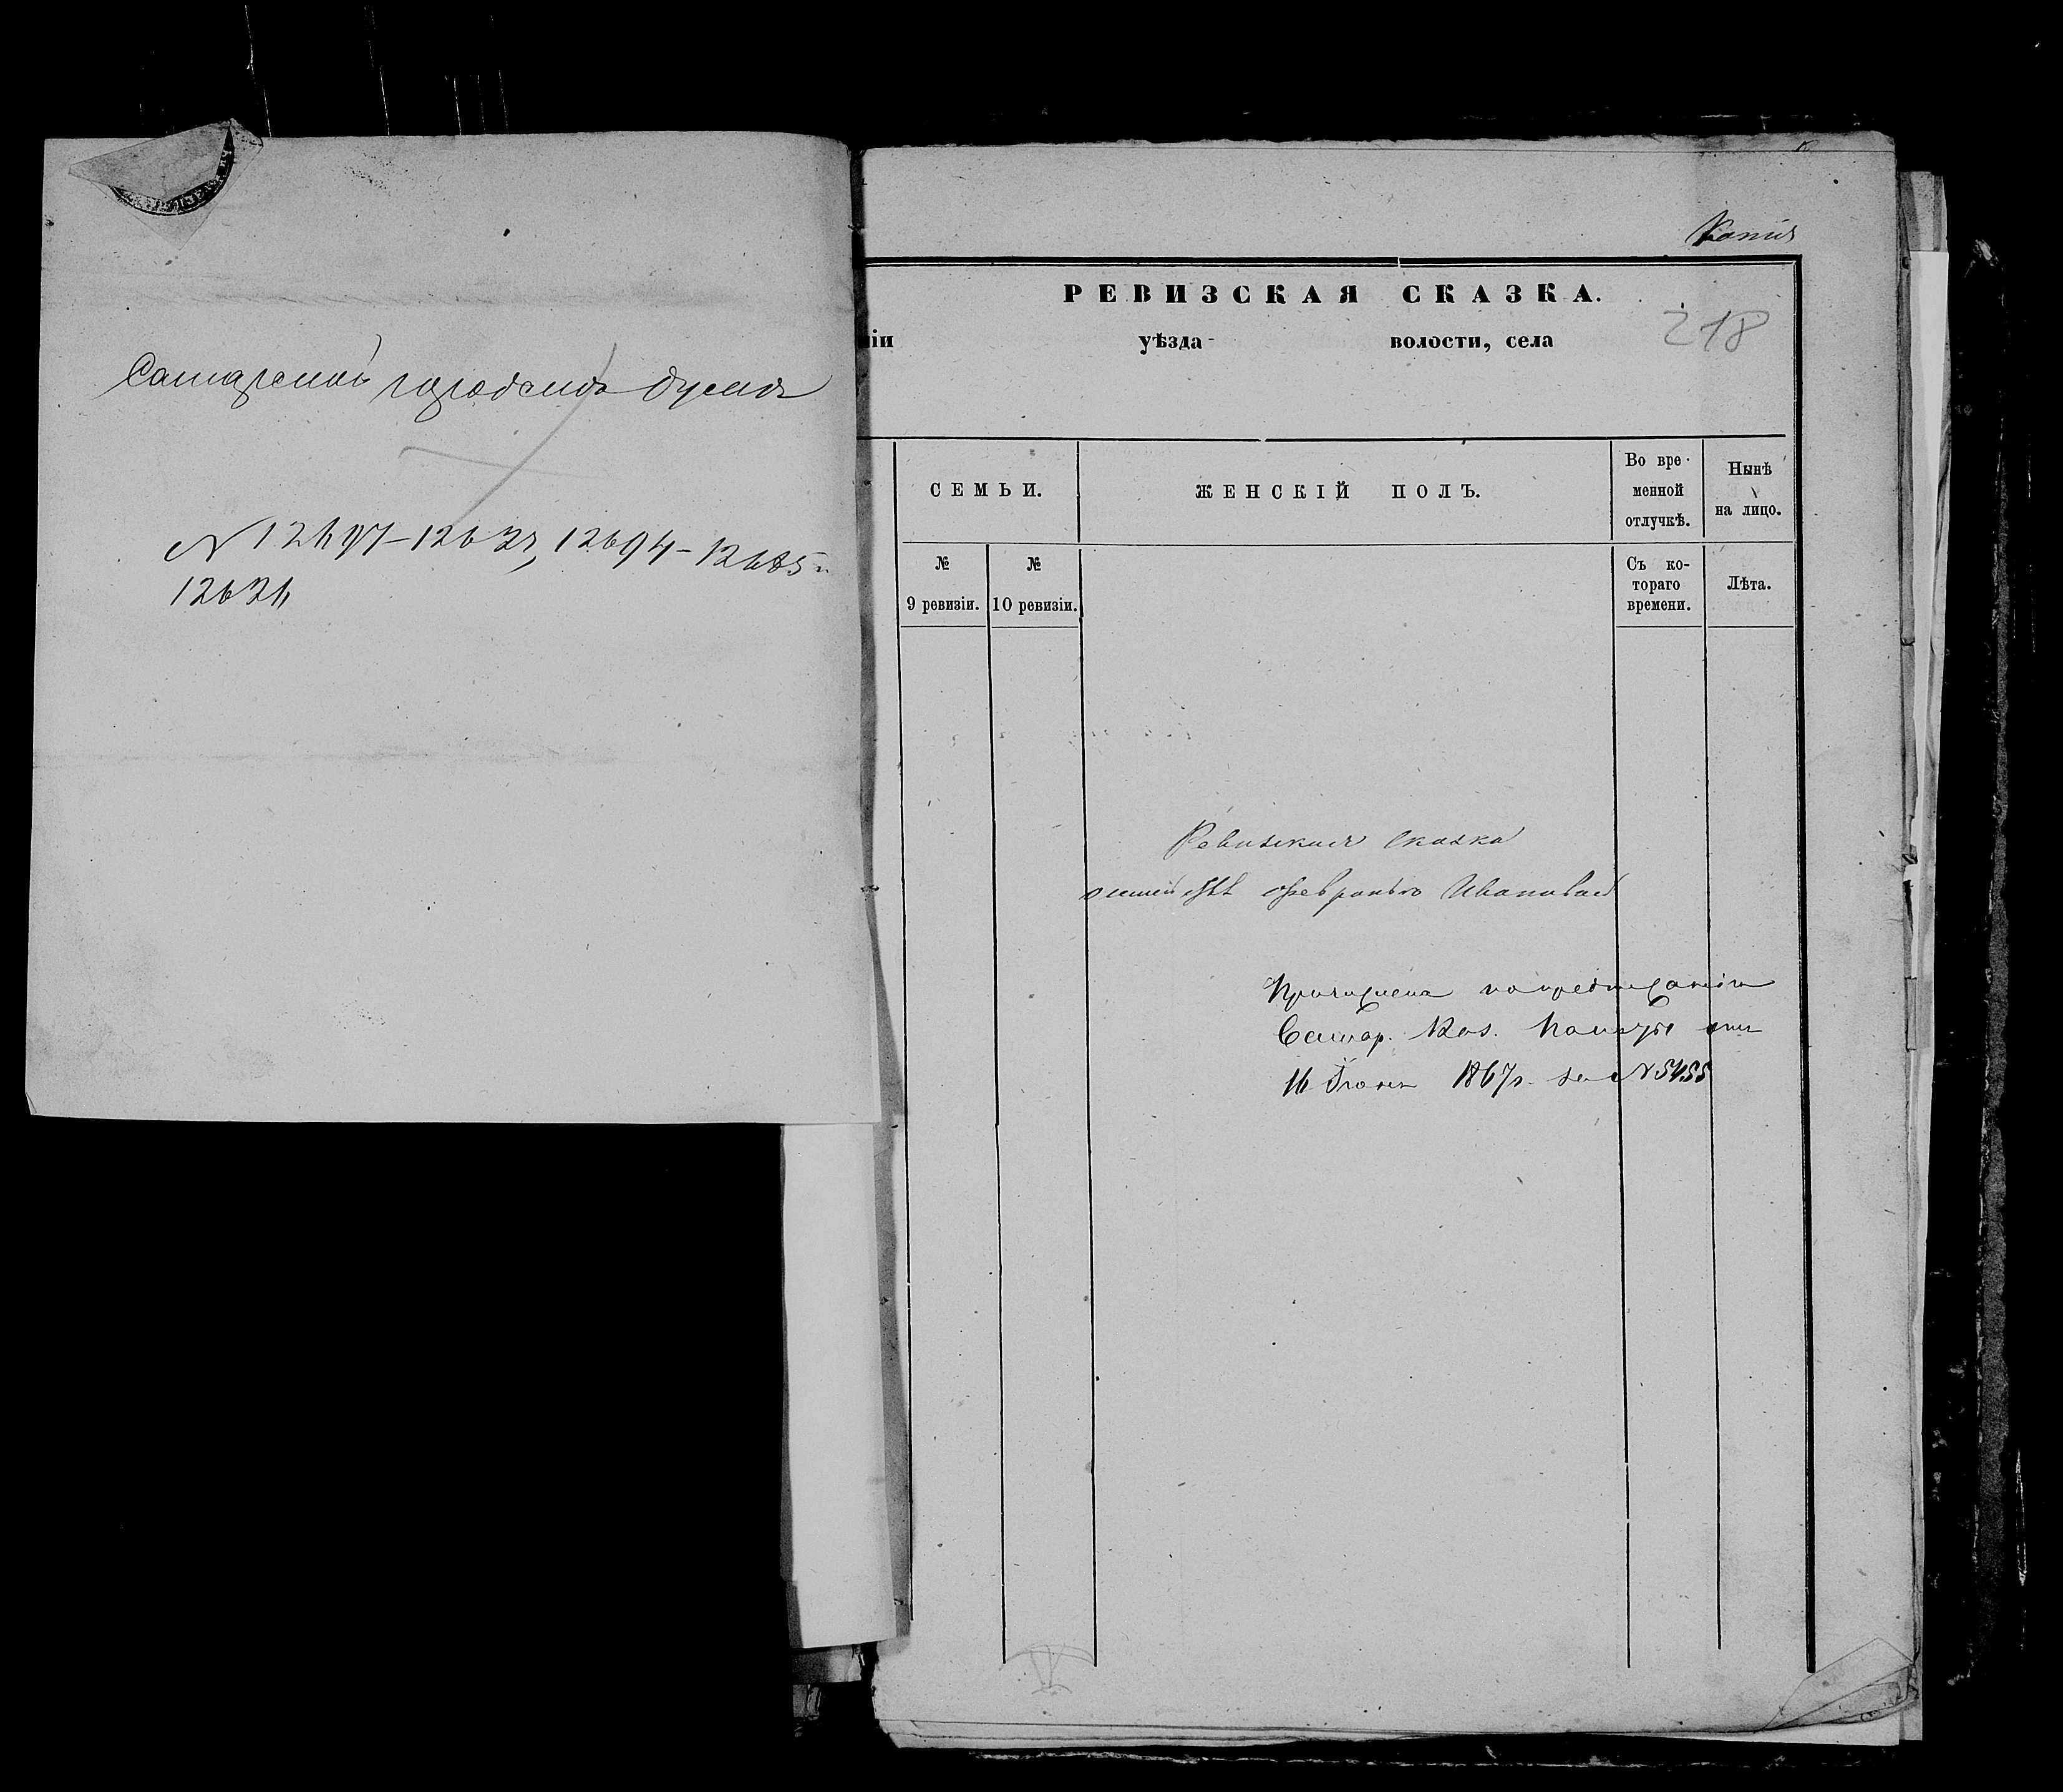 Самарской городской думѣ
12621
Копия
РЕВИЗСКАЯ СКАЗКА.
218
іи уѣзда волости, села
СЕМЬИ.
ЖЕНСКІЙ ПОЛЪ.
Во вре-
менной
отлучкѣ.
Нынѣ
на лицо.
№
9 ревизіи.
№
10 ревизіи.
Съ ко-
тораго
времени.
Лѣта.
Ревизская сказка
Февронью Иванова
Причислена по предписанію
Самар. Каз. Палаты отъ
16 Іюня 1867 г. за № 5455